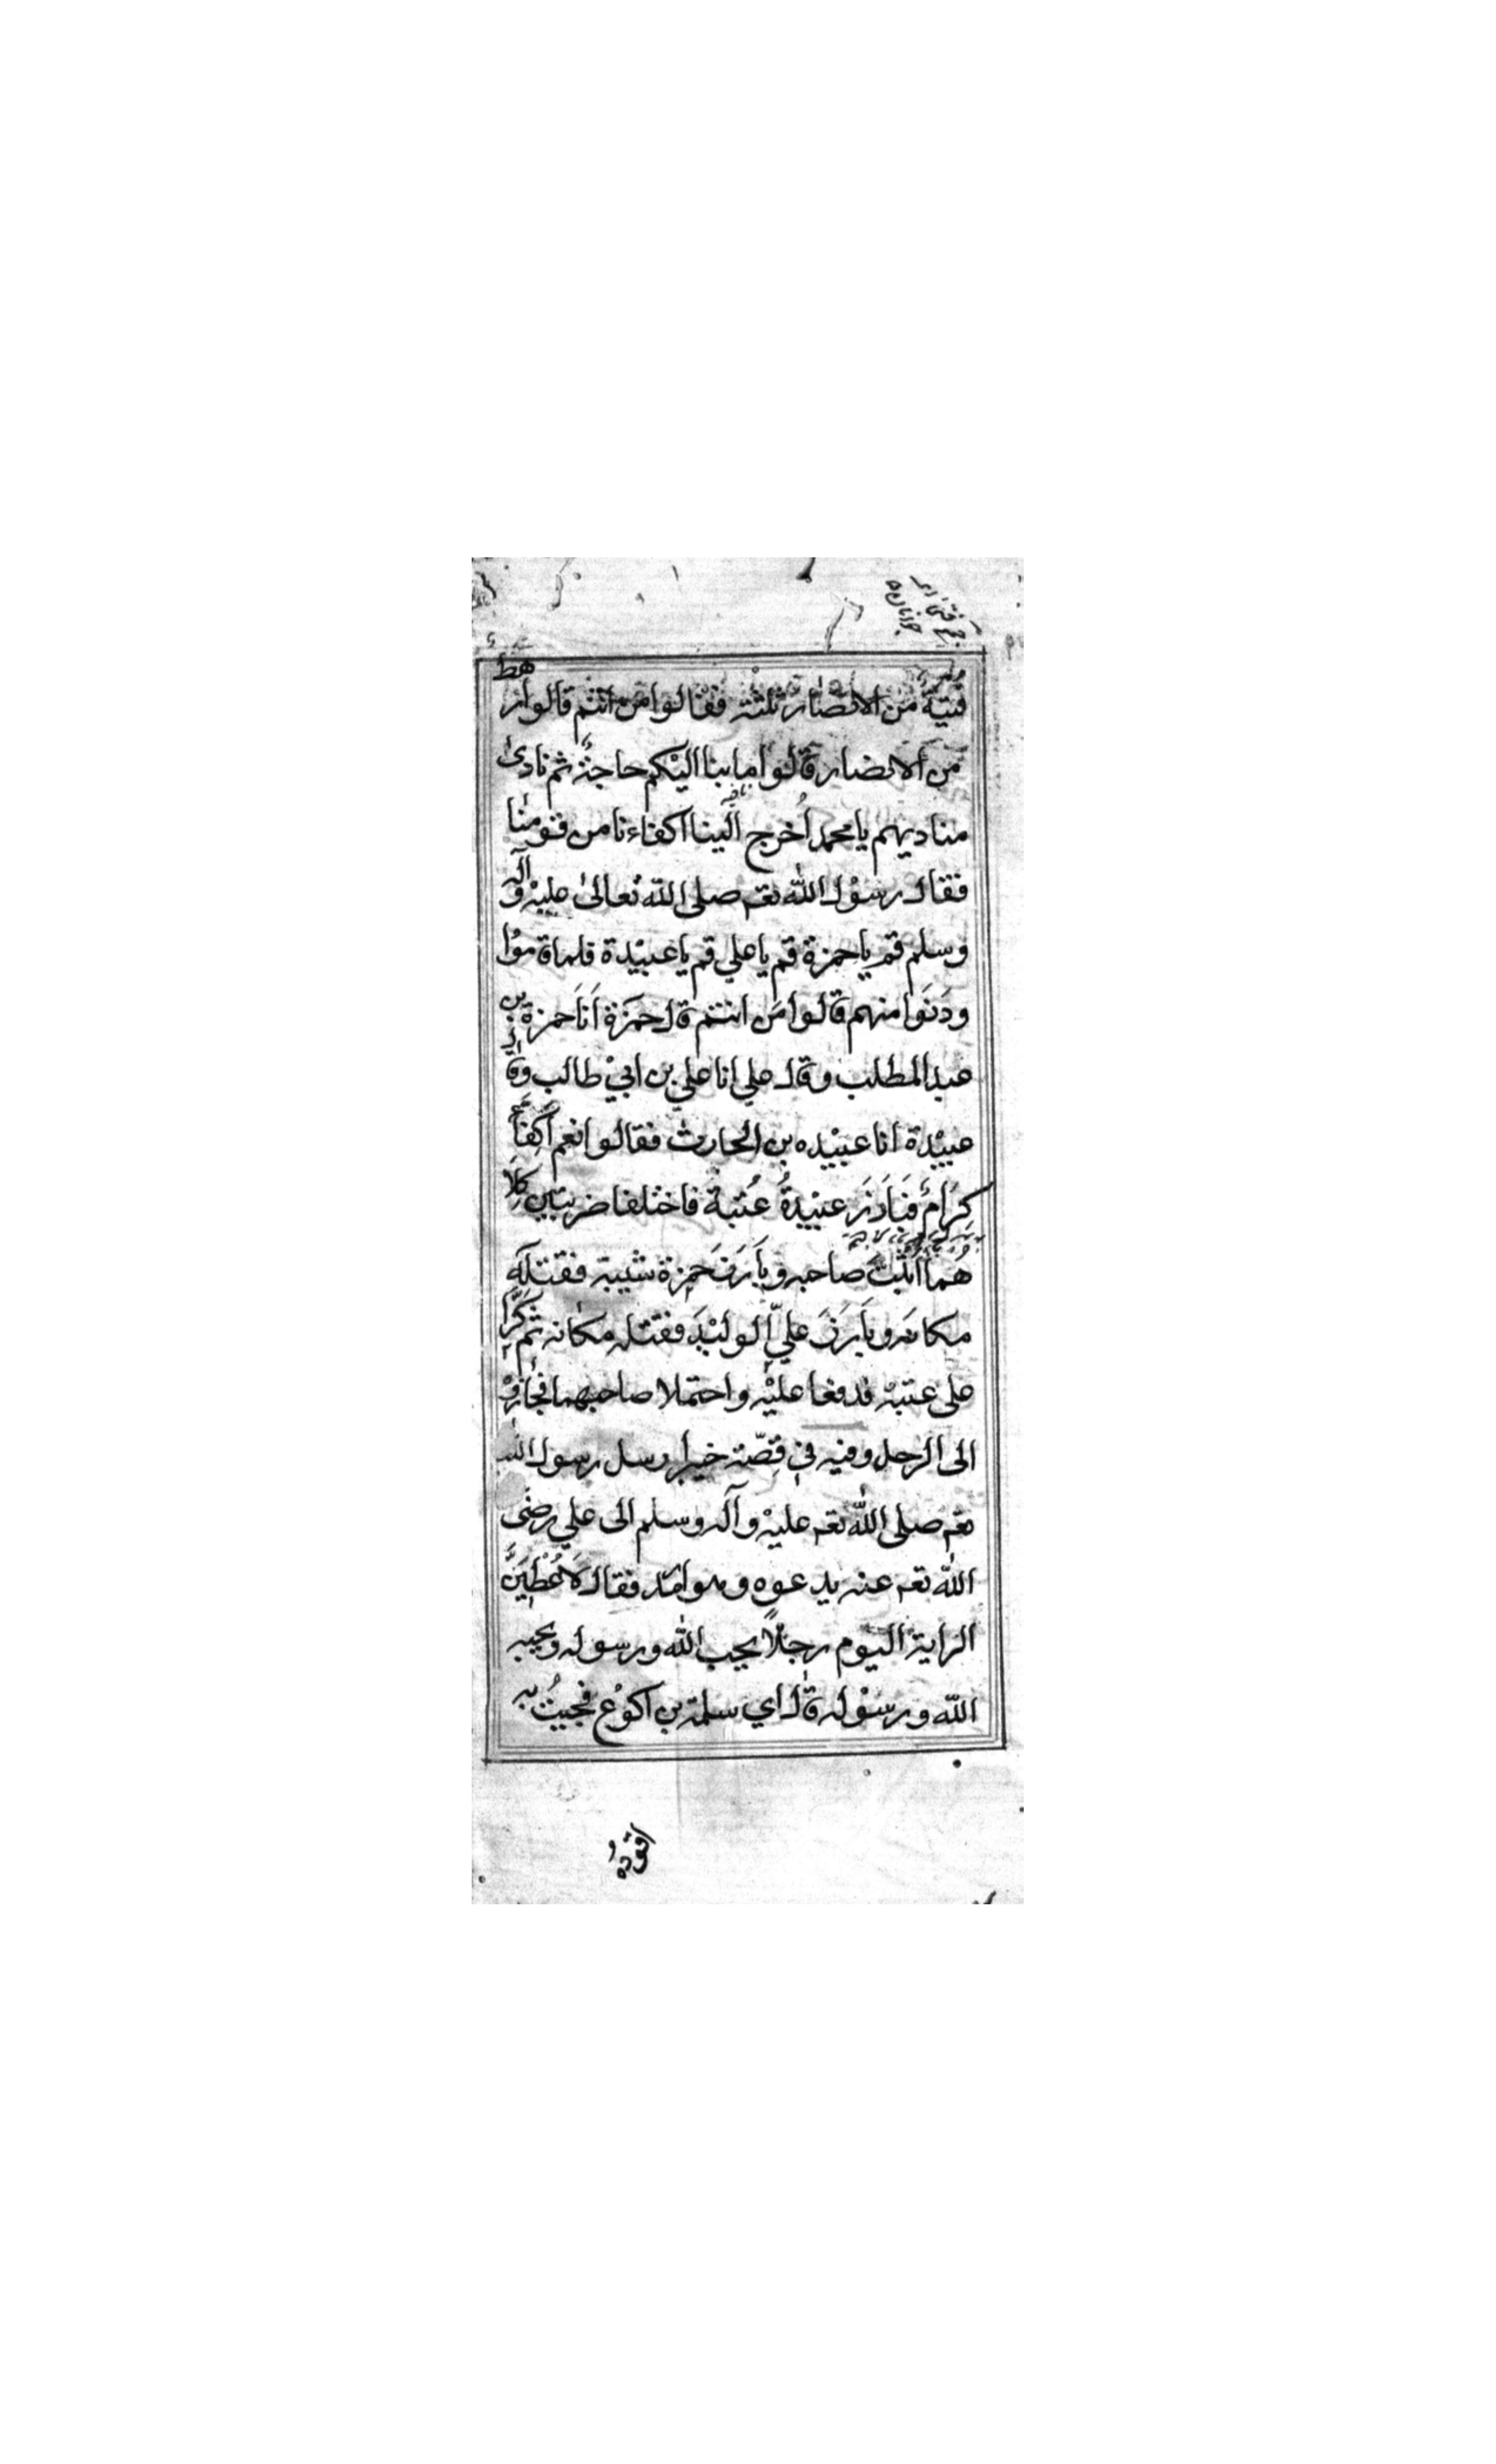 جمع فتی ای
جوانان ۵
فتية من الانصار ثلثة فقالوا من انتم قالوا رهط
من الانصار قالوا ما بنا اليكم حاجة ثم نادى
مناديهم يا محمد اُخرج الينا اكفاءنا من قومنا
فقال رسول الله تعم صلى الله تعالى عليه وآله
وسلم قم يا حمزة قم يا علي قم يا عبيدة فلما قاموا
ودنوا منهم قالوا من انتم قال حمزة انا حمزة بن
عبد المطلب وقال علي انا علي بن ابي طالب وقال
عبيدة انا عبيده بن الحارث فقالوا نعم اكفاء
كرام فبارز عبيدة عتبة فاختلفا ضربتين كلا
هما اثبت صاحبه وبارز حمزة شيبة فقتله
مكانه وبارز علي الوليد فقتله مكانه ثم كرا
على عتبة فدفعا عليه واحتملا صاحبهما فجازوا
الى الرحل وفيه في قصة خيبر ارسل رسول الله
تعم صلى الله تعم عليه وآله وسلم الى علي رضى
الله تعم عنه يدعوه وهو ارمد فقال لاعطين
الراية اليوم رجلاً يحب الله ورسوله ويحبه
الله ورسوله قال اي سلمة بن اكوع فجيت به
اقوده